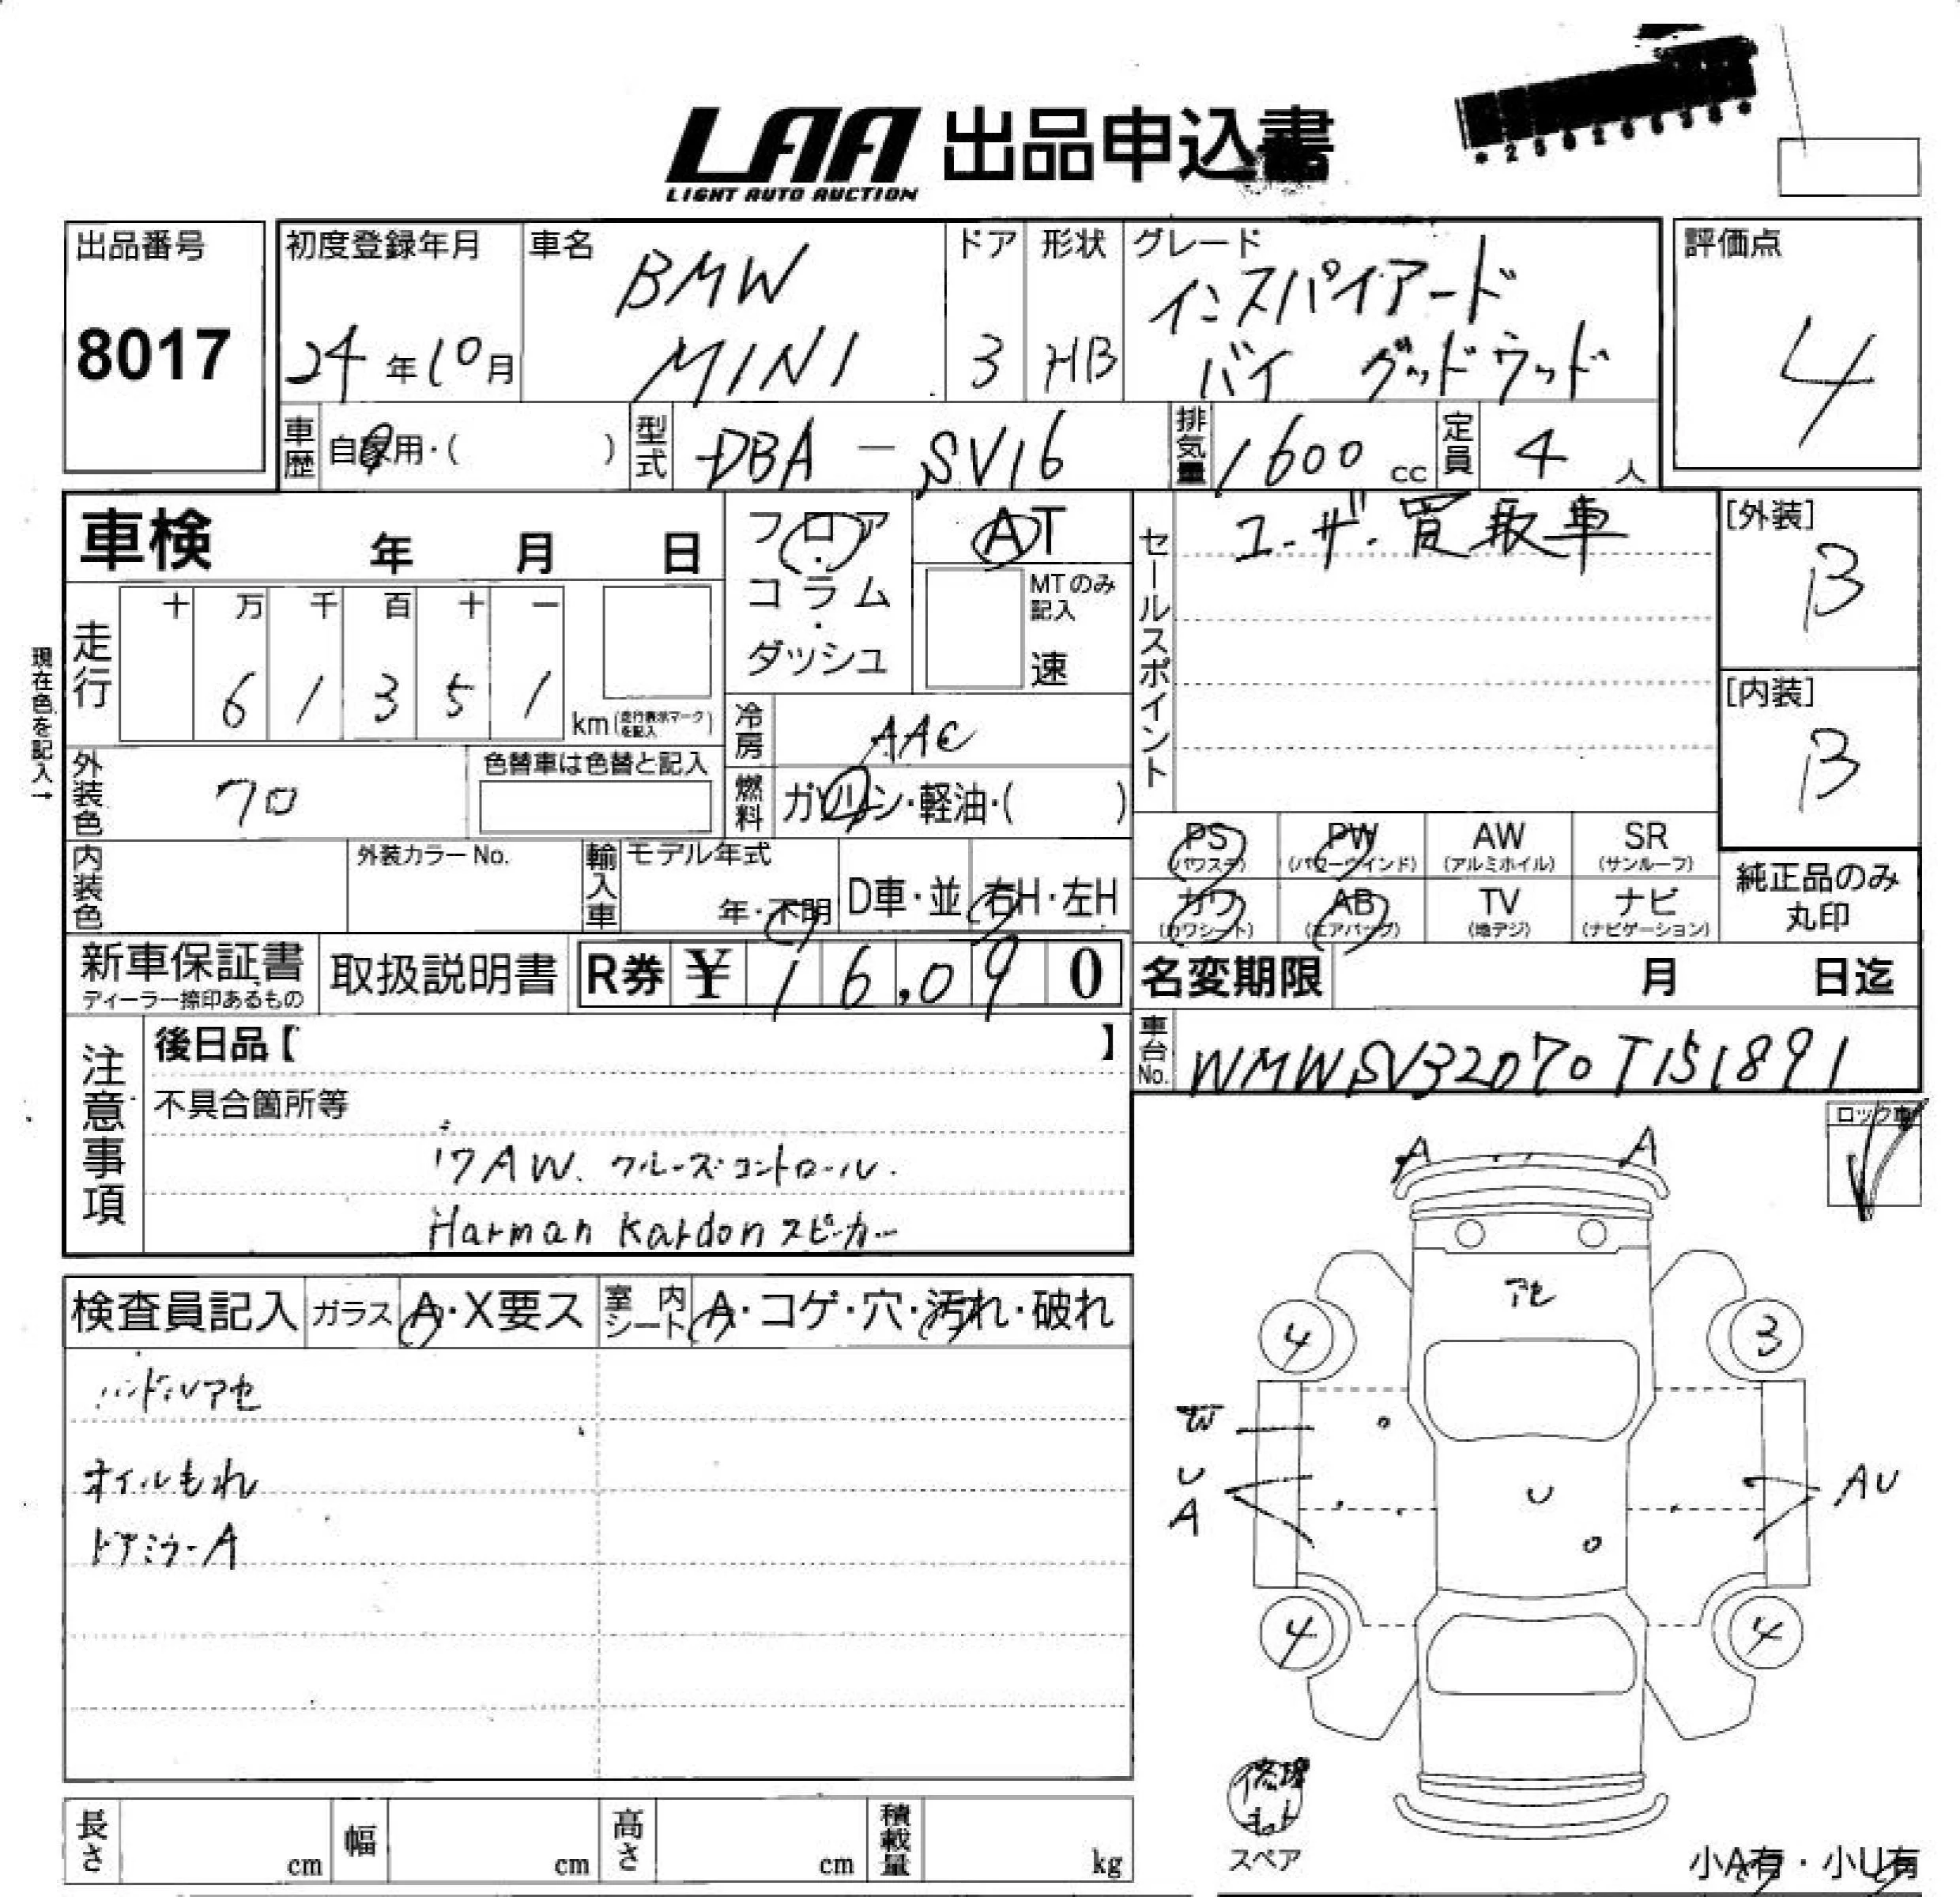 LAA 出品申込書
LIGHT AUTO AUCTION
出品番号
8017
初度登録年月
24年10月
車名
BMW
MINI
ドア
3
形状
HB
グレード
インスパイアード
バイ グッドウッド
評価点
4
車歴
自家用・( )
型式
DBA-SV16
排気量
1600 cc
定員
4 人
車検 年 月 日
フロア
・
コラム
・
ダッシュ
AT
MTのみ
記入
速
セールスポイント
ユーザー買取車
[外装]
B
[内装]
B
現在色を記入→
走行
十 万 千 百 十 一
6 1 3 5 1
km(走行表示マークを記入)
冷房
AAC
外装色
クロ
色替車は色替と記入
燃料
ガソリン・軽油・( )
PS
(パワステ)
PW
(パワーウインド)
AW
(アルミホイル)
SR
(サンルーフ)
カワ
(カワシート)
AB
(エアバッグ)
TV
(地デジ)
ナビ
(ナビゲーション)
純正品のみ
丸印
内装色
外装カラーNo.
輸入車
モデル年式
年・不明
D車・並
右H・左H
新車保証書
ディーラー捺印あるもの
取扱説明書
R券 ¥ 16,090
名変期限 月 日迄
車台No.
WMWSV32070T151891
注意事項
後日品【 】
不具合箇所等
17AW. クルーズコントロール.
Harman Kardonスピーカー
ロック車
検査員記入
ガラス
A・X要ス
室内
シート
A・コゲ・穴・汚れ・破れ
ハンドルアセ
オイルもれ
ドアミラーA
A
A
アセ
4
3
W
U
A
U
AU
4
4
修理
キット
スペア
小A有・小U有
長さ cm
幅 cm
高さ cm
積載量 kg